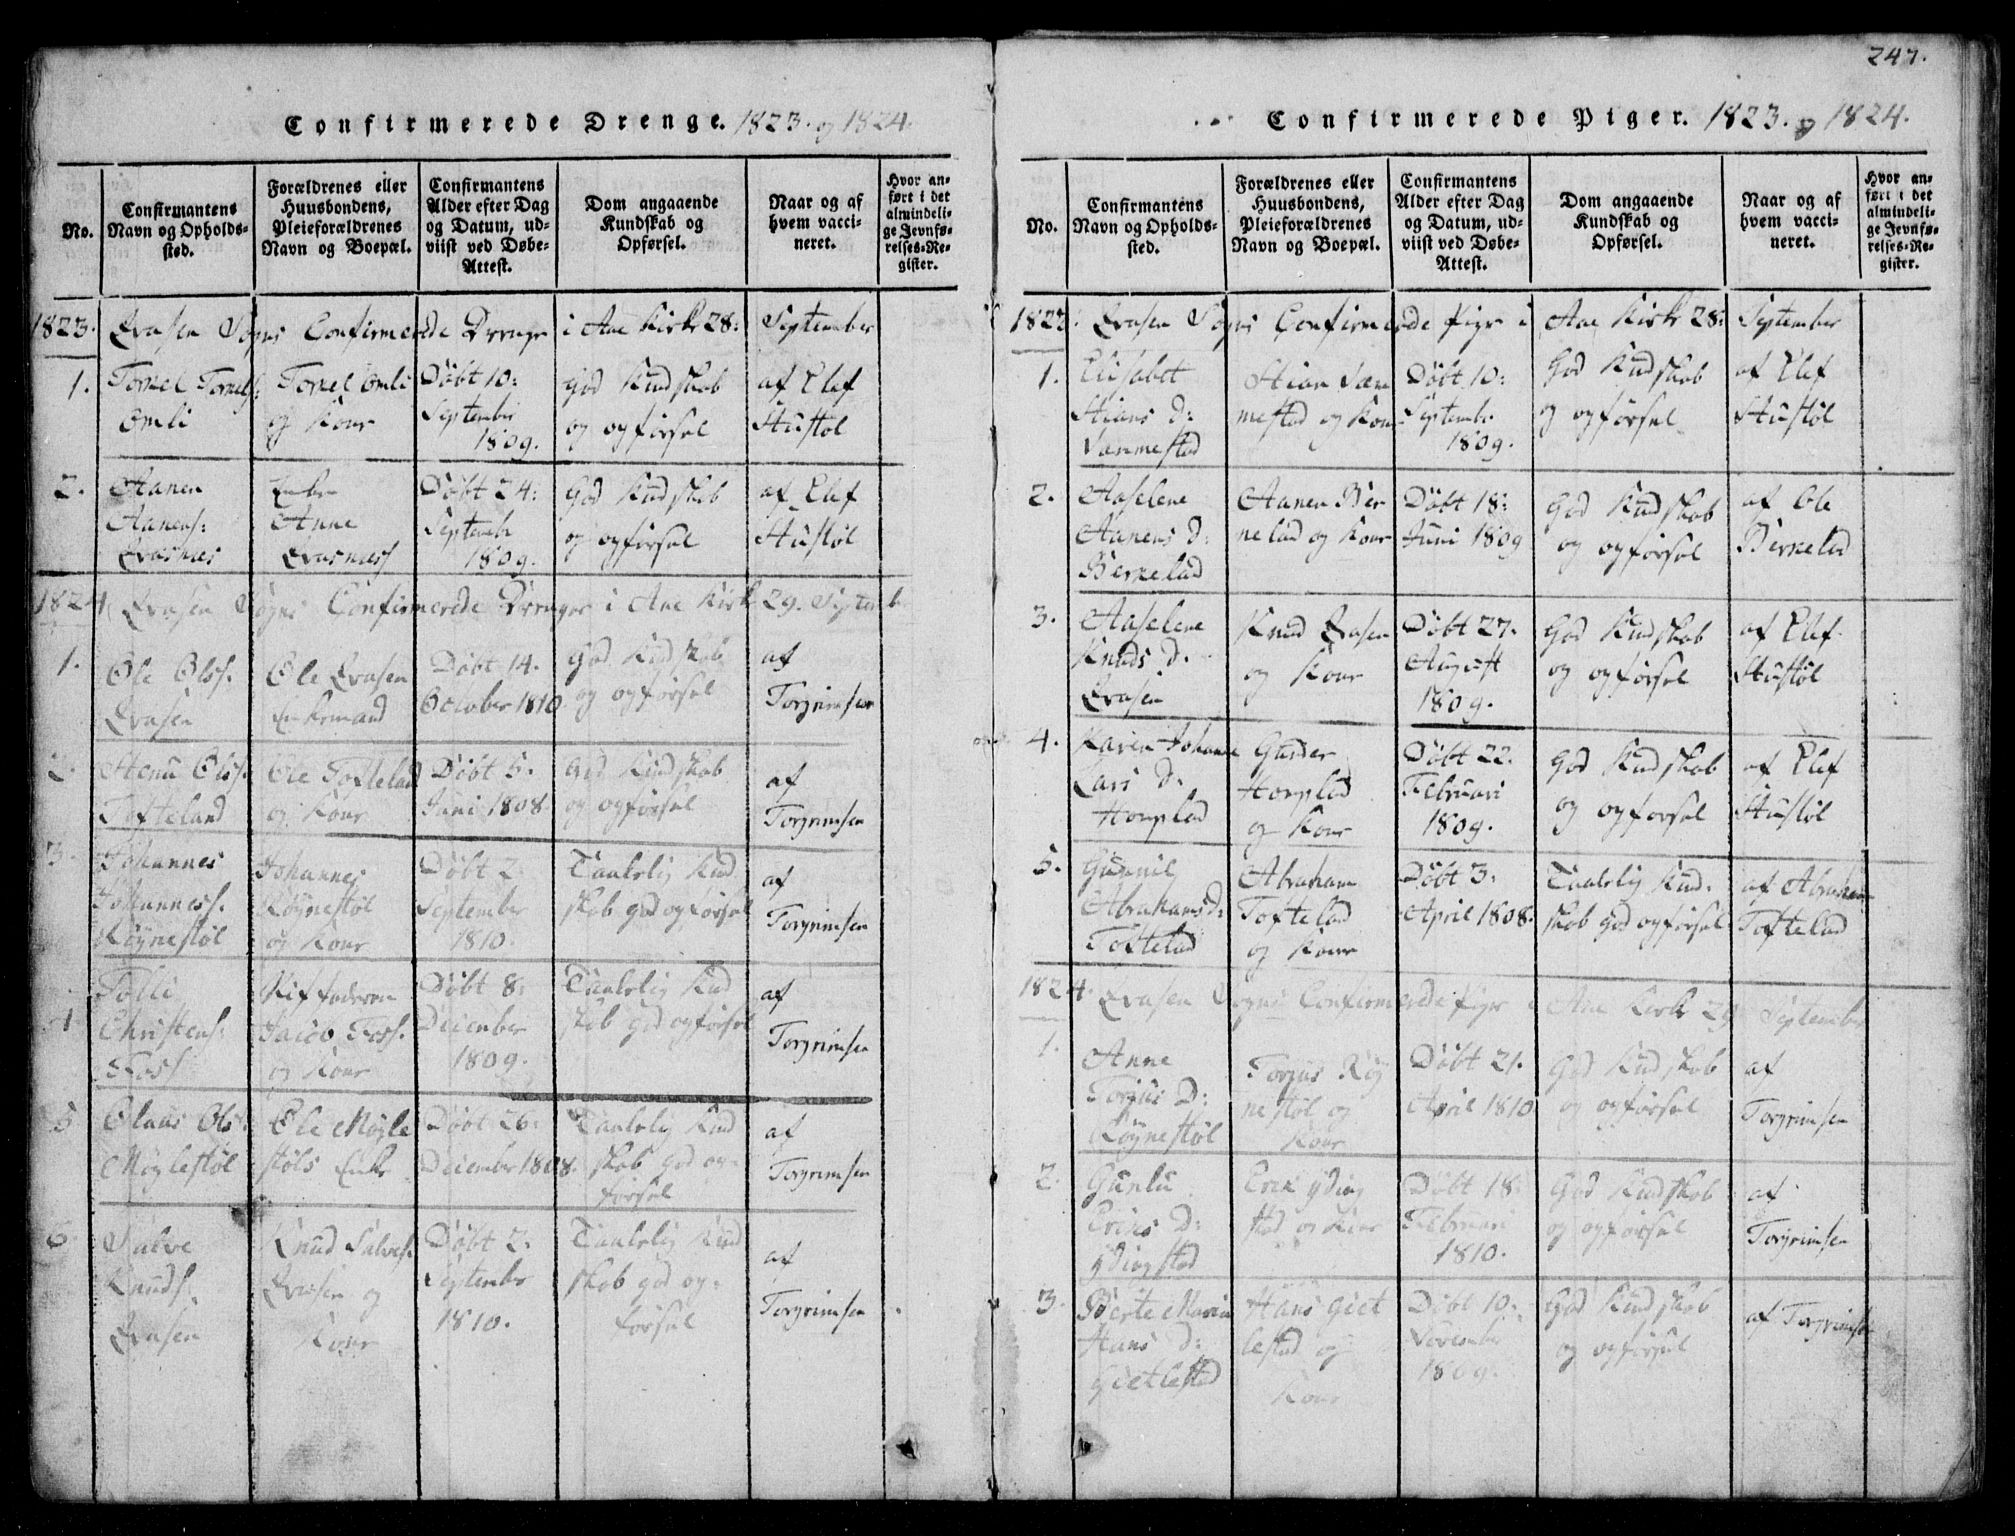 247.
Confirmerede Drenge. 1823. og 1824.
No.
Confirmantens
Navn og Opholds-
sted.
Forældrenes eller
Huusbondens,
Pleieforældrenes
Navn og Boepæl.
Confirmantens
Alder efter Dag
og Datum, ud-
viist ved Døbe-
Attest.
Dom angaaende
Kundskab og
Opførsel.
Naar og af
hvem vacci-
neret.
Hvor an-
ført i det
almindeli-
ge Jevnfø-
relses-Re-
gister.
1823. Evasen Sogns Confirmerede Drenge i Aae Kirke 28: September
1.
Torkel Torkels:
Omli
Torkel Omli
og Kone
Døbt 10:
September
1809.
God Kudskab
og opførsel
af Elef
Stustøl
2.
Aanen
Aanens:
Evasnæs
Enken
Anne
Evasnæss
Døbt 24:
September
1809.
God Kudskab
og opførsel
af Elef
Stustøl
1824 Evasen Sogns Confirmerede Drenger i Aae Kirke 29. September
1.
Ole Olss.
Evasen
Ole Evasen
Enkemand
Døbt 14.
October 1810
God Kudskab
og opførsel
af
Torgrimsen
2.
Olss.
Tofteland
Ole Toftelad
og Kone
Døbt 5.
Juni 1808.
God Kudskab
og opførsel
af
Torgrimsen
3.
Johannes
Johanness.
Røynestøl
Johannes
Røynestøl
og Kone
Døbt 2.
September
1810.
Taalelig Kud
skab god opførsel
af
Torgrimsen
4
Tolli
Christens:
Foss
Jacob Foss.
og Kone
Døbt 8:
December
1809.
Taalelig Kud
skab god opførsel
af
Torgrimsen
5
Olaus Ols:
Møglestøl
Ole Møgle
støls Enke
Døbt 26:
December 1808.
Taalelig Kud
skab god op-
førsel
af
Torgrimsen
6
Salve
Knuds.
Evasen
Knud Salves.
Evasen og
Kone
Døbt 2:
September
1810.
Taalelig Kud
skab god op-
førsel
af
Torgrimsen
Confirmerede Piger. 1823. og 1824.
No.
Confirmantens
Navn og Opholds-
sted.
Forældrenes eller
Huusbondens,
Pleieforældrenes
Navn og Boepæl.
Confirmantens
Alder efter Dag
og Datum, ud-
viist ved Døbe-
Attest.
Dom angaaende
Kundskab og
Opførsel.
Naar og af
hvem vacci-
neret.
Hvor an-
ført i det
almindeli-
ge Jevnfø-
relses-Re-
gister.
1823. Evasen Sogns Confirmerede Pige i Aae Kirke 28: September
1.
Elisabet
Stians D:
Vammestad
Stian Vam
mestad og Kone
Døbt 10:
September
1809.
God Kudskab
og opførsel
af Elef
Stustøl
2.
Aaselene
Aanens D:
Berkelad
Aanen Ber
kelad og Kone
Døbt 18:
Juni 1809
God Kudskab
og opførsel
af Ole
Berkelad
3.
Aaselene
Knuds D.
Evasen
Knud Evasen
og Kone
Døbt 27.
August
1809.
God Kudskab
og opførsel
af Elef
Stustøl
4.
Karen Johanne
Lars D:
Homplad
Gunder
Homplad
og Kone
Døbt 22.
Februari
1809.
God Kudskab
og opførsel
af Elef
Stustøl
5.
Gunnil
Abrahams D:
Toftelad
Abraham
Toftelad
og Kone
Døbt 3:
April 1808.
Taalelig Kud-
skab god opførsel
af Abraham
Toftelad
1824. Evasen Sogns Confirmerede Piger i Aae Kirke 29 September
1.
Anne
Torjus D:
Røynestøl
Torjus Røy
nestøl og
Kone
Døbt 21.
April 1810
God Kudskab
og opførsel
af
Torgrimsen
2.
Gunlu
Eriks D:
Ydingstad
Erik Yding
stad og Kone
Døbt 18:
Februari
1810.
God Kudskab
og opførsel
af
Torgrimsen
3.
Berte Maria
Hans D:
Gietlestad
Hans Giet
lestad og
Kone
Døbt 10:
November
1809.
God Kudskab
og opførsel
af Torgrimsen